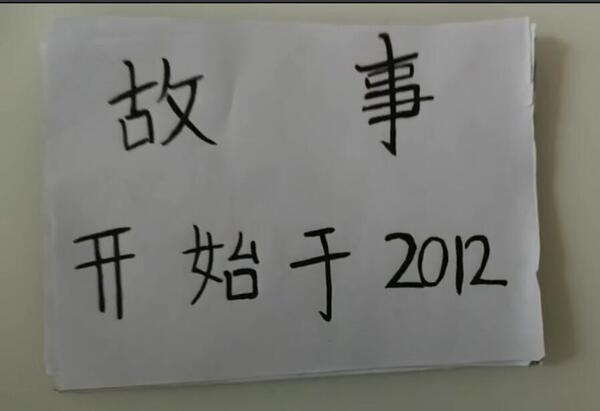 故事
开始于2012